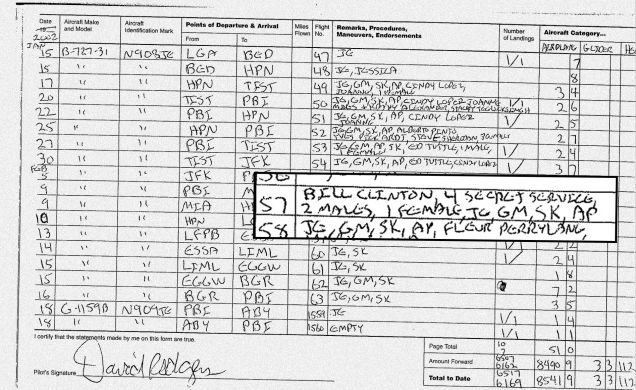 Date 2002 Aircraft Make and Model Aircraft Identification Mark Points of Departure & Arrival From To Miles Flown Flight No. Remarks, Procedures, Maneuvers, Endorsements Number of Landings Aircraft Category...
AIRPLANE GLIDER HE
JAN
15 B-727-31 N908JE LGA BED 47 JE 1/1 7
15 " " BED HPN 48 JE, JESSICA 8
17 " " HPN TIST 49 JE, GM, SK, AP, CINDY LOPEZ, JOANNE, 1 FEMALE 3 4
20 " " TIST PBI 50 JE, GM, SK, AP, CINDY LOPEZ, JOANNE 2 6
22 " " PBI HPN 51 JE, GM, SK, AP, CINDY LOPEZ JOANNE 1/1 2 5
25 " " HPN PBI 52 JE, GM, SK, AP, 2 7
27 " " PBI TIST 53 JE, GM, SK, AP, ED TUTTLE, 1 MALE, 1 FEMALE 1/1 2 4
30 " " TIST JFK 54 JE, GM, SK, AP, ED TUTTLE, CINDY LOPEZ 1/1 3 7
FEB
" " JFK P
9 " " PBI M
57 BILL CLINTON, 4 SECRET SERVICE, 2 MALES, 1 FEMALE, JE, GM, SK, AP
9 " " MIA H
58 JE, GM, SK, AP, FLEUR PERRY LANG,
10 " " HPN
13 " " LFPB
14 " " ESSA LIML 60 JE, SK 2 4
15 " " LIML EGGW 61 JE, SK 1 8
15 " " EGGW BGR 62 JE, GM, SK 7 2
16 " " BGR PBI 63 JE, GM, SK 3 5
18 G-1159B N909JE PBI ABY 1559 JE 1/1 1 4
18 " " ABY PBI 1560 EMPTY 1/1 1 1
I certify that the statements made by me on this form are true.
Page Total 51 0
Amount Forward 8490 9 3 3 112
Pilot's Signature David Rodgers
Total to Date 8541 9 3 3 112